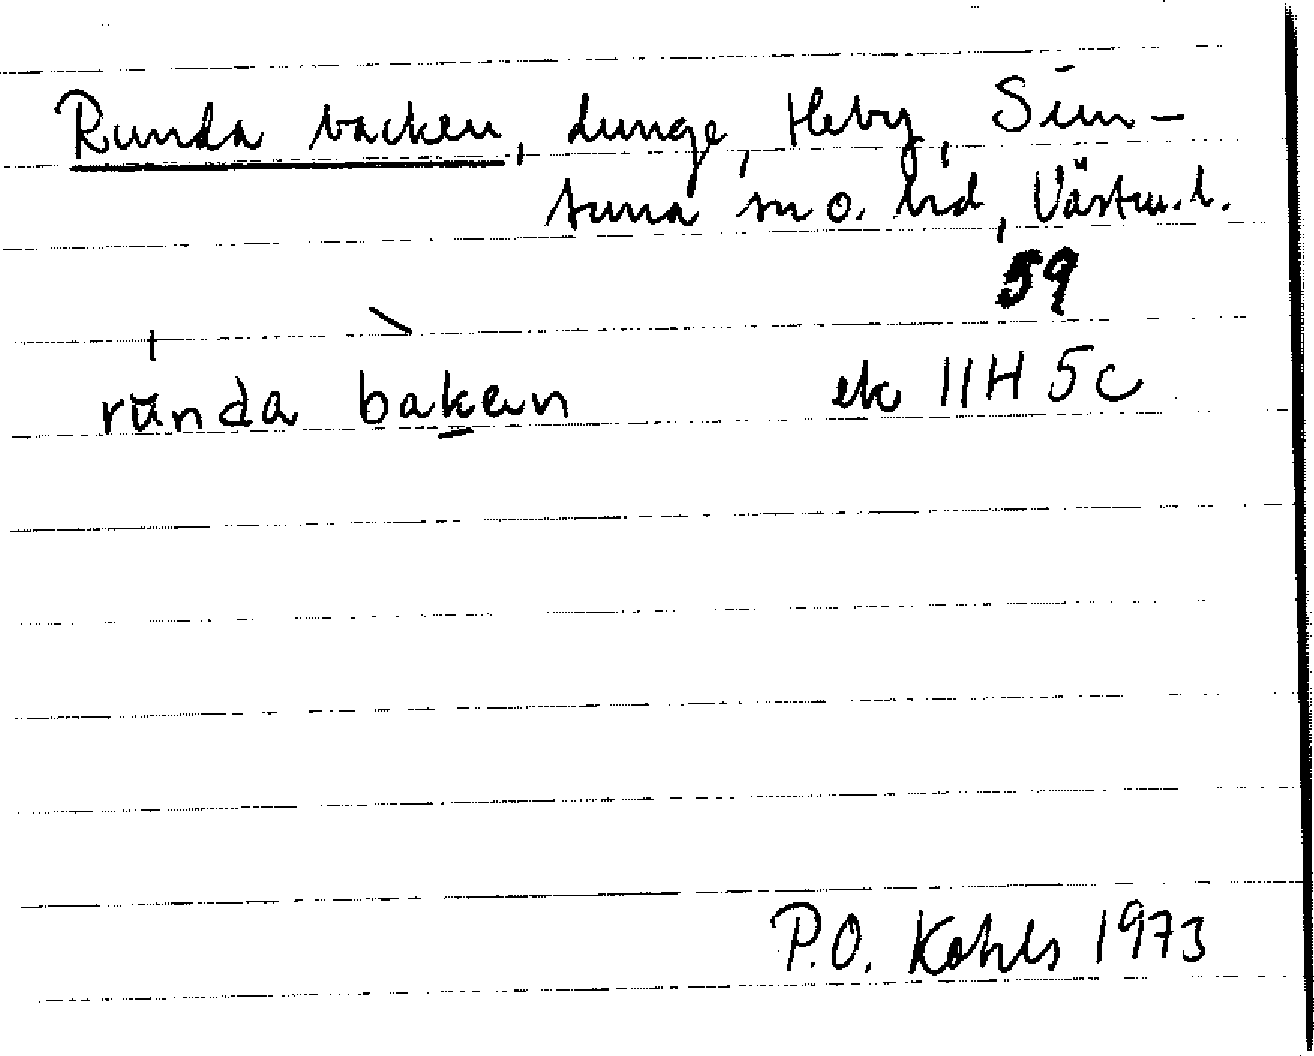 Runda backen, dunge, Heby, Sim-
tuna sn o. hd, Västm.l.
59
runda baken ek 11H 5c
P.O. Kohls 1973